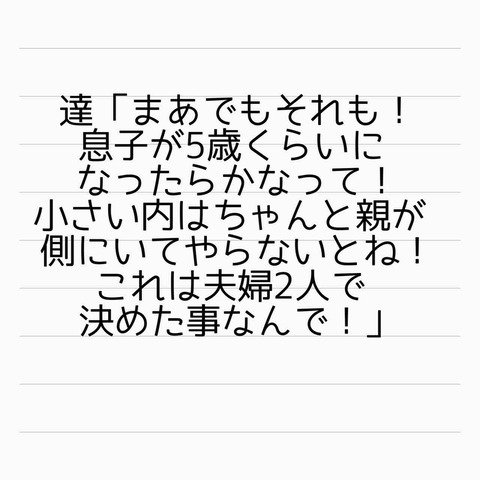 達「まあでもそれも！
息子が5歳くらいに
なったらかなって！
小さい内はちゃんと親が
側にいてやらないとね！
これは夫婦2人で
決めた事なんで！」